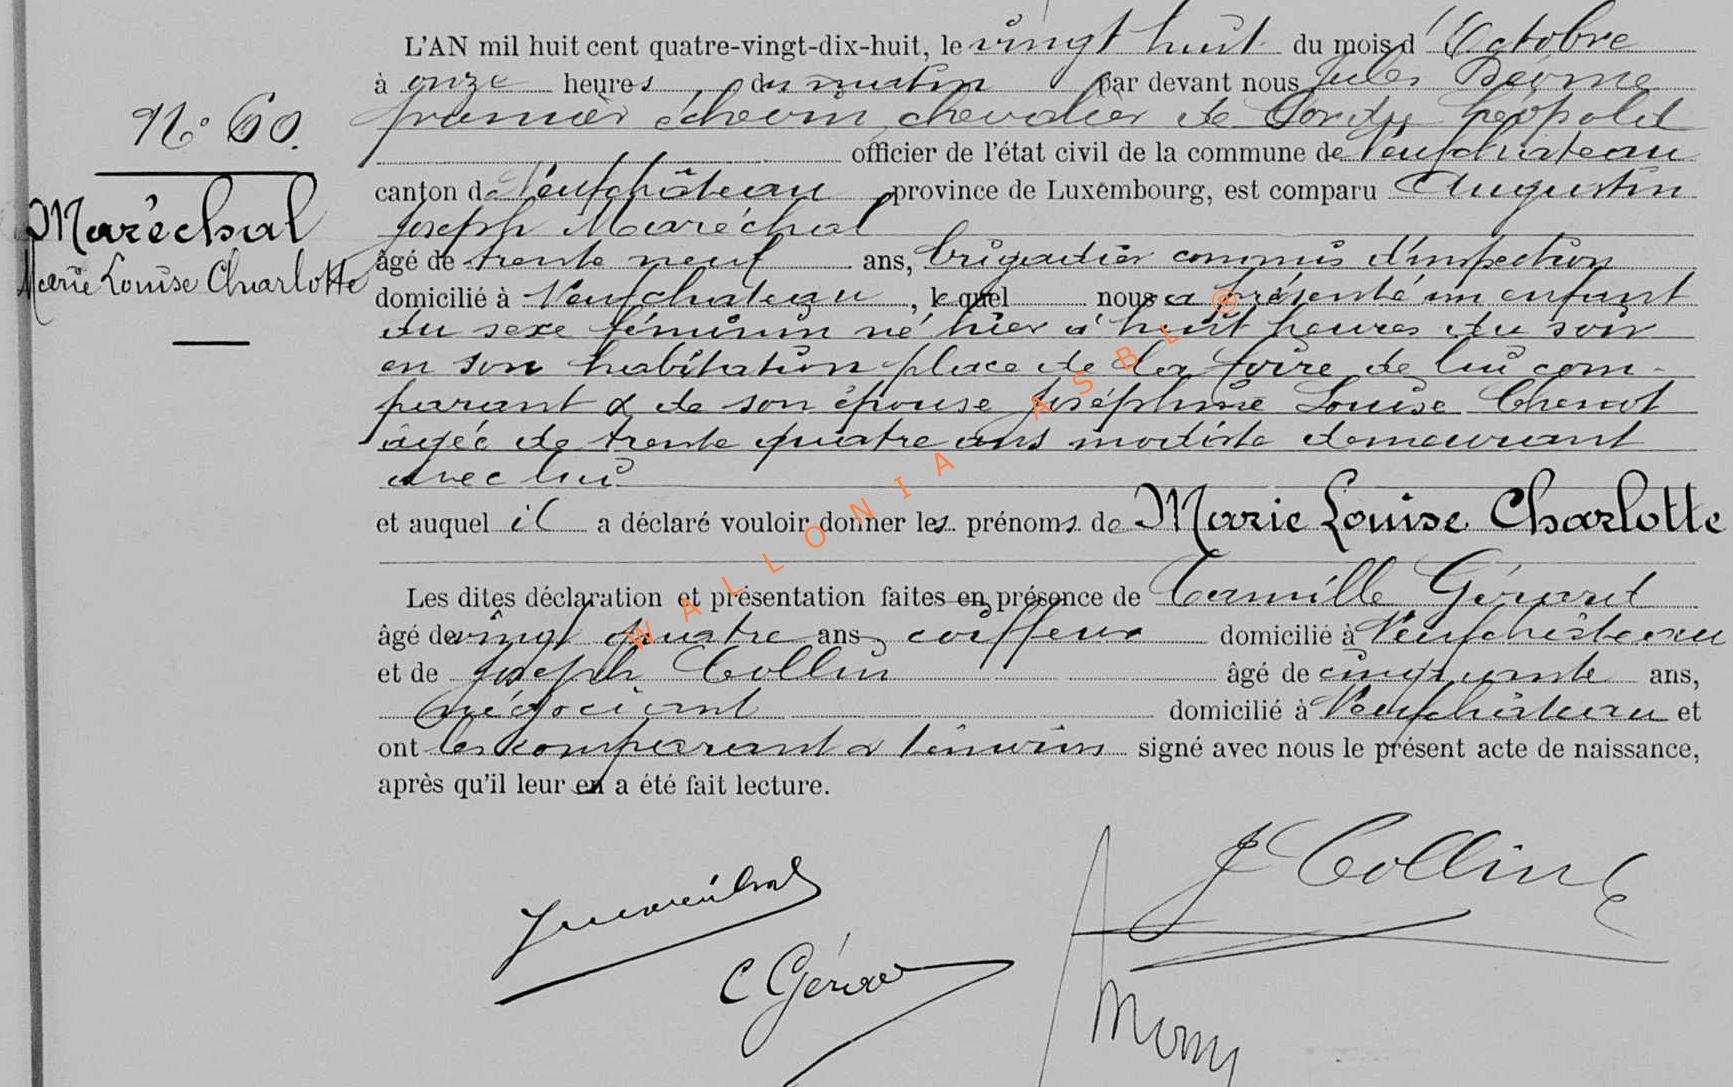 L'AN mil huit cent quatre-vingt-dix-huit, le vingt huit du mois d'Octobre
à onze heures du matin par devant nous Jules
premier échevin chevalier de l'ordre Léopold
officier de l'état civil de la commune de Neufchâteau
N° 60.
canton de Neufchâteau province de Luxembourg, est comparu Augustin
Maréchal
Joseph Maréchal
Marie Louise Charlotte
âgé de trente neuf ans, brigadier commis d'inspection
domicilié à Neufchateau, lequel nous a présenté un enfant
du sexe féminin né hier à huit heures du soir
en son habitation place de la foire de lui com-
parant & de son épouse Joséphine Louise Chenot
âgée de trente quatre ans modiste demeurant
avec lui
et auquel il a déclaré vouloir donner les prénoms de Marie Louise Charlotte
Les dites déclaration et présentation faites en présence de Camille Gérard
âgé de vingt quatre ans, coiffeur domicilié à Neufchâteau
et de Joseph Collin âgé de cinquante ans,
négociant domicilié à Neufchâteau et
ont les comparant & témoins signé avec nous le présent acte de naissance,
après qu'il leur en a été fait lecture.
J Collin
JMaréchal
C Gérard
WALLONIA ASBL ®